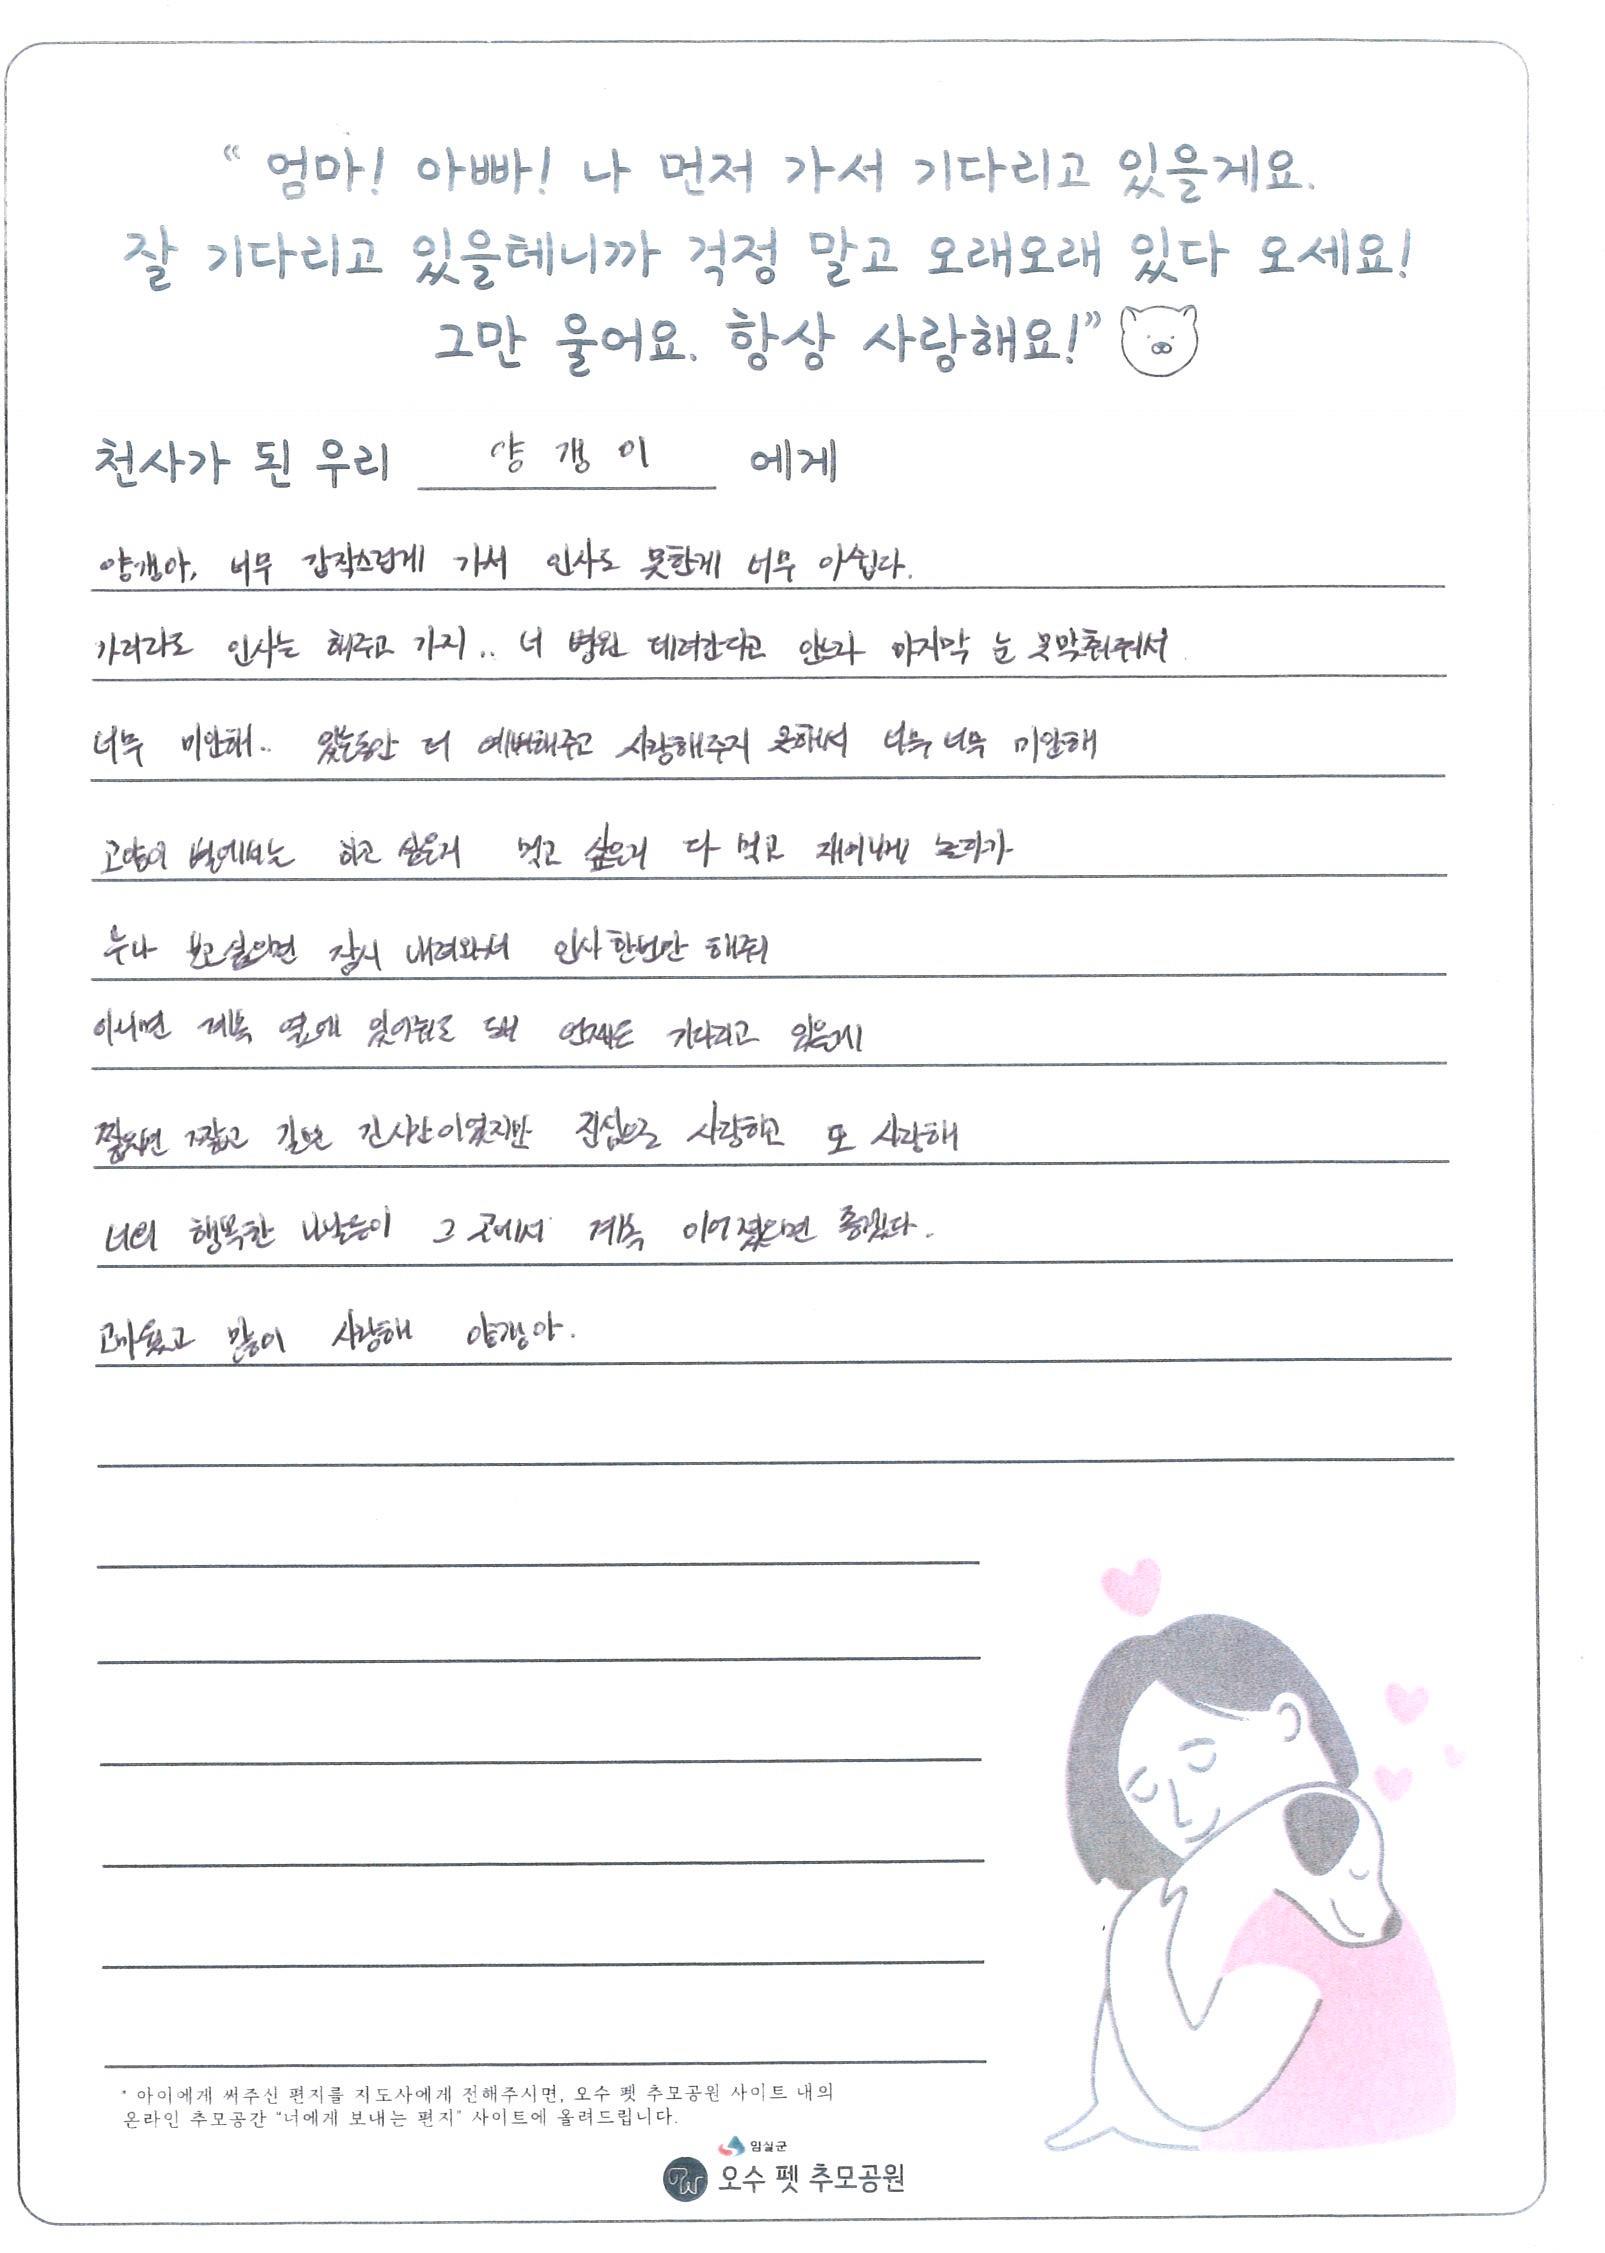 “ 엄마! 아빠! 나 먼저 가서 기다리고 있을게요.
잘 기다리고 있을테니까 걱정 말고 오래오래 있다 오세요!
그만 울어요. 항상 사랑해요!”
천사가 된 우리 양갱이 에게
양갱아, 너무 갑작스럽게 가서 인사도 못한게 너무 아쉽다.
가더라도 인사는 해주고 가지.. 너 병원 데려간다고 안느라 마지막 눈 못막춰줘서
너무 미안해.. 있는동안 더 예뻐해주고 사랑해주지 못해서 너무 너무 미안해
고양이 별에서는 하고 싶은거 먹고 싶은거 다 먹고 재미나게 놀다가
누나 보고싶으면 잠시 내려와서 인사 한번만 해줘
아니면 계속 옆에 있어줘도 돼 언제든 기다리고 있을게
짧다면 짧고 길다면 긴 시간이였지만 진심으로 사랑하고 또 사랑해
너의 행복한 나날들이 그 곳에서 계속 이어졌으면 좋겠다.
고마웠고 많이 사랑해 양갱아.
* 아이에게 써주신 편지를 지도사에게 전해주시면, 오수 펫 추모공원 사이트 내의
온라인 추모공간 “너에게 보내는 편지” 사이트에 올려드립니다.
임실군
오수 펫 추모공원